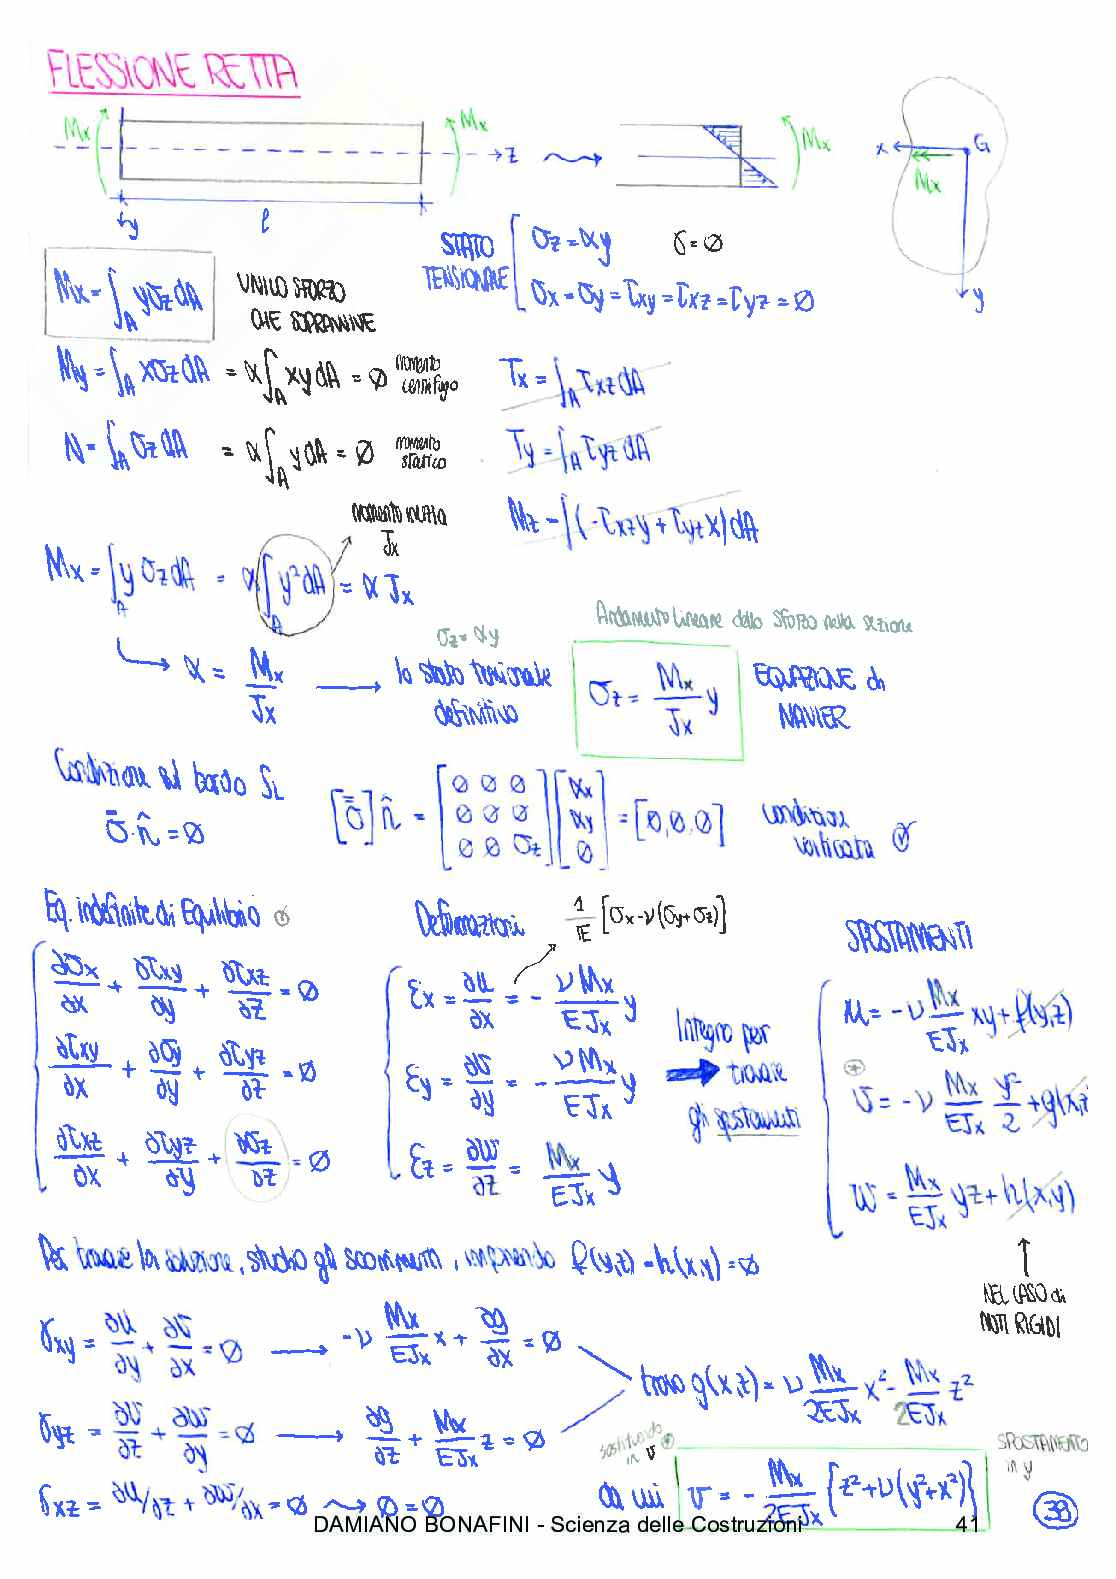 FLESSIONE RETTA
Mx Mx z Mx x G Mx
y l y
Mx = ∫_A yσz dA
UNICO SFORZO
CHE SOPRAVVIVE
STATO TENSIONALE { σz = αy γ = ∅
σx = σy = τxy = τxz = τyz = ∅
My = ∫_A xσz dA = α∫_A xy dA = ∅ momento centrifugo
Tx = ∫_A τxz dA
N = ∫_A σz dA = α∫_A y dA = ∅ momento statico
Ty = ∫_A τyz dA
momento inerzia Jx
Mz = ∫(-τxz y + τyz x) dA
Mx = ∫_A y σz dA = α∫_A y² dA = α Jx
Andamento lineare dello sforzo nella sezione
α = Mx/Jx → σz = αy lo stato tensionale definitivo
σz = Mx/Jx y
EQUAZIONE di NAVIER
Condizione sul bordo SL
σ̄·n̂ = ∅
[σ̿] n̂ = [∅ ∅ ∅; ∅ ∅ ∅; ∅ ∅ σz] [αx; αy; ∅] = [∅,∅,∅] condizione verificata
Eq. indefinite di Equilibrio
∂σx/∂x + ∂τxy/∂y + ∂τxz/∂z = ∅
∂τxy/∂x + ∂σy/∂y + ∂τyz/∂z = ∅
∂τxz/∂x + ∂τyz/∂y + ∂σz/∂z = ∅
Deformazioni
1/E [σx - ν(σy + σz)]
εx = ∂u/∂x = - νMx/EJx y
εy = ∂v/∂y = - νMx/EJx y
εz = ∂w/∂z = Mx/EJx y
Integro per
trovare
gli spostamenti
SPOSTAMENTI
u = -ν Mx/EJx xy + f(y,z)
v = -ν Mx/EJx y²/2 + g(x,z
w = Mx/EJx yz + h(x,y)
NEL CASO di
MOTI RIGIDI
Per trovare la soluzione, studio gli scorrimenti, imponendo f(y,z) = h(x,y) = ∅
γxy = ∂u/∂y + ∂v/∂x = ∅ → -ν Mx/EJx x + ∂g/∂x = ∅
γyz = ∂v/∂z + ∂w/∂y = ∅ → ∂g/∂z + Mx/EJx z = ∅
trovo g(x,z) = ν Mx/2EJx x² - Mx/2EJx z²
γxz = ∂u/∂z + ∂w/∂x = ∅ ⇝ ∅ = ∅
sostituendo in v
da cui v = - Mx/2EJx {z² + ν(y² + x²)}
SPOSTAMENTO in y
38
DAMIANO BONAFINI - Scienza delle Costruzioni 41